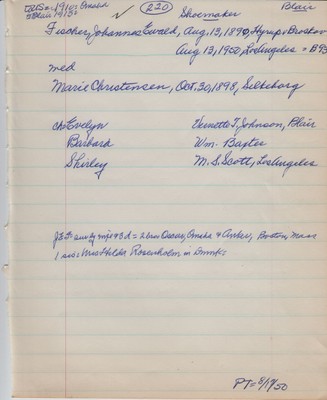 (220)
Shoemaker
Blair
Fischer, Johannes Ewald, Aug, 13, 1890, Hyrup v Broskov
Aug 13, 1950, Los Angeles = B95
med
Marie Christensen, Oct. 30, 1898, Silkeborg
ch: Evelyn Vernette T. Johnson, Blair
Barbara Wm. Baxter
Shirley M. S. Scott, Los Angeles
J E F: surv by wife & 3 d = 2 bros Oscar, Omaha & Anker, Boston, Mass
1 sis: Mrs Hilda Rosenholm in Dnmk
PT= 8/17/50